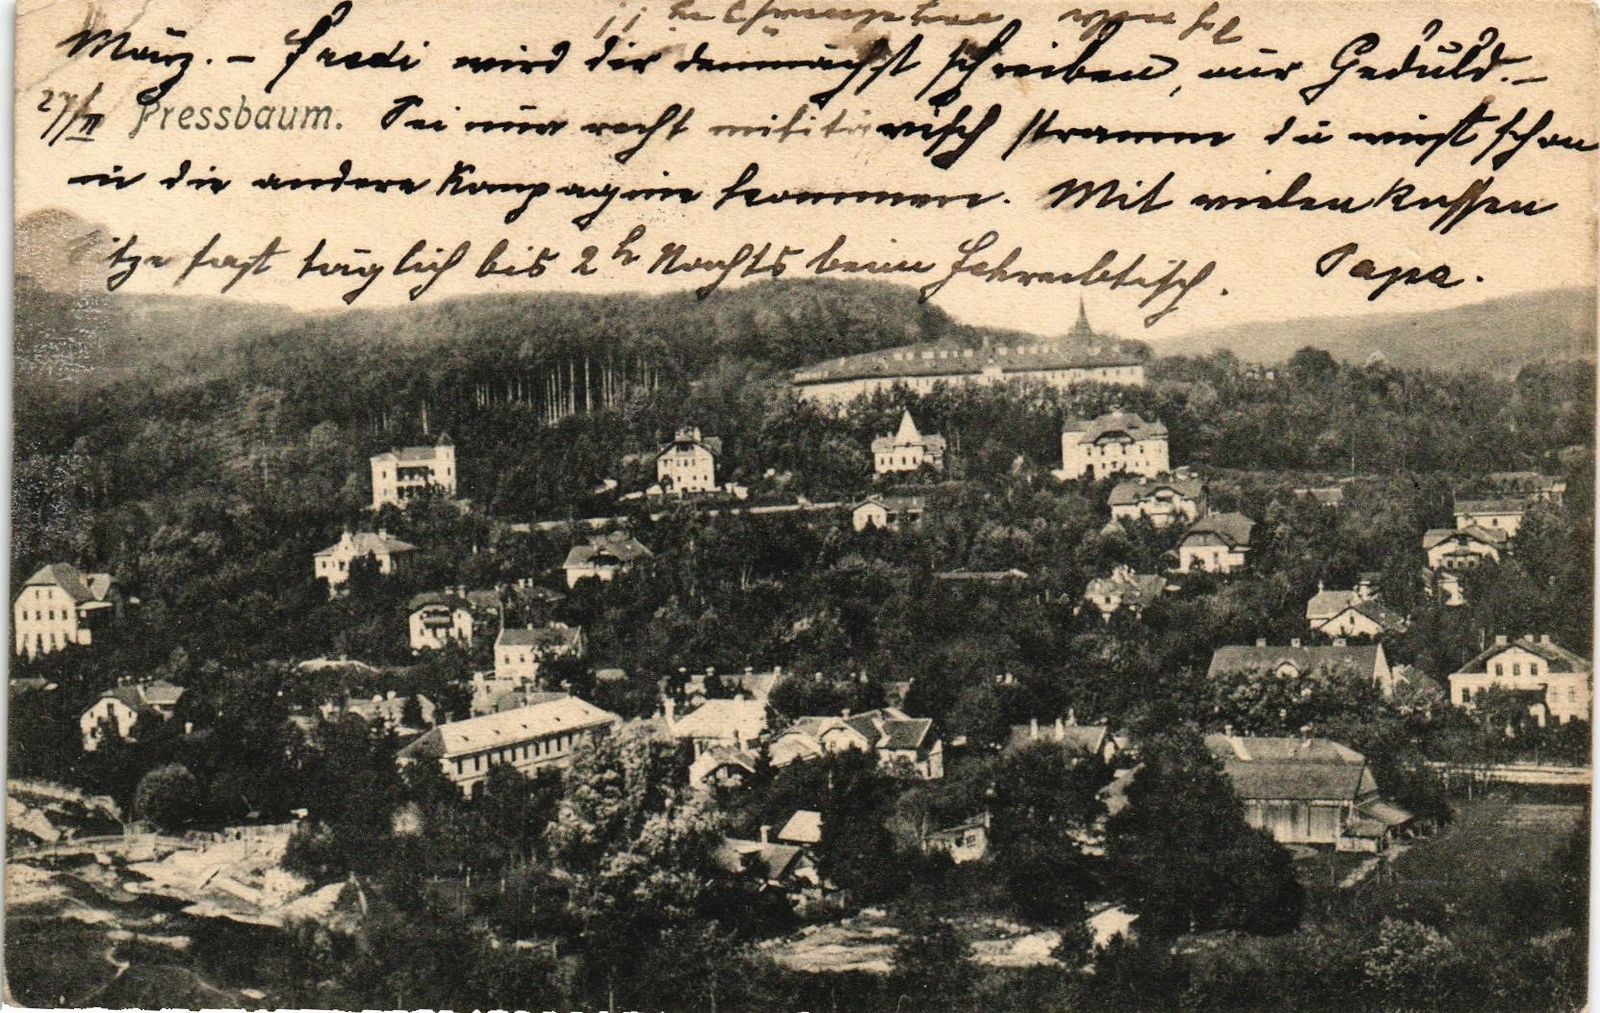 März. – Fredi wird dir demnächst schreiben, nur Geduld. –
27/II Pressbaum. Sei nur recht militärisch stramm du wirst schon
in die andere Kompagnie kommen. Mit vielen Küssen
sitze fast täglich bis 2h Nachts beim Schreibtisch. Papa.